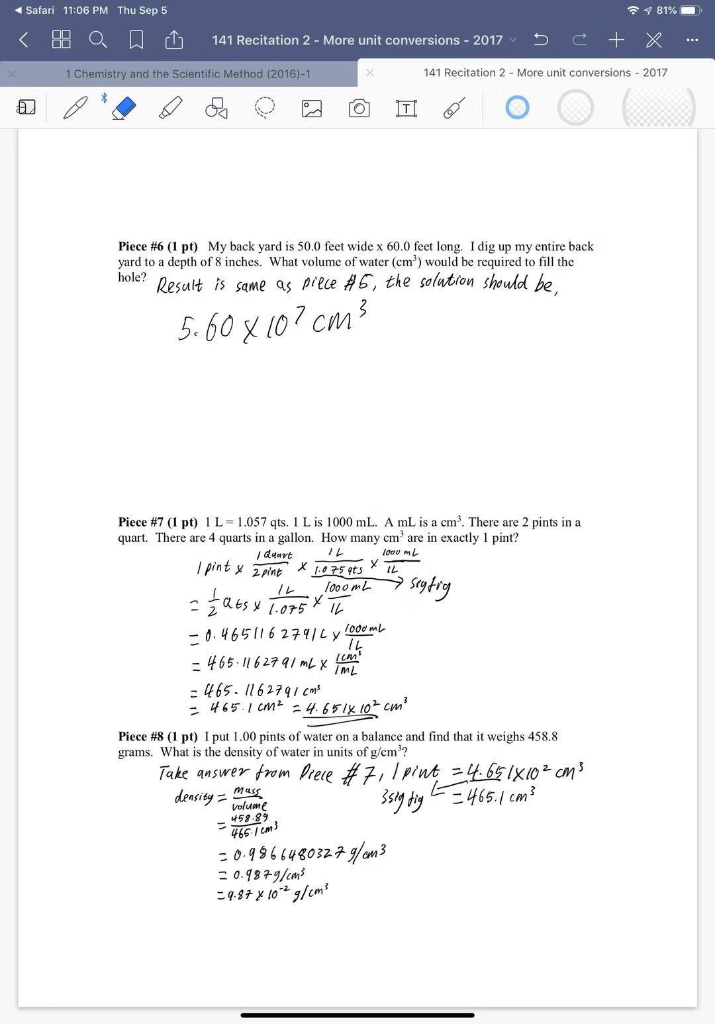 Safari 11:06 PM Thu Sep 5 81%
141 Recitation 2 - More unit conversions - 2017
1 Chemistry and the Scientific Method (2016)-1
141 Recitation 2 - More unit conversions - 2017
Piece #6 (1 pt) My back yard is 50.0 feet wide x 60.0 feet long. I dig up my entire back
yard to a depth of 8 inches. What volume of water (cm³) would be required to fill the
hole? Result is same as piece #5, the solution should be,
5.60 x 10⁷ cm³
Piece #7 (1 pt) 1 L = 1.057 qts. 1 L is 1000 mL. A mL is a cm³. There are 2 pints in a
quart. There are 4 quarts in a gallon. How many cm³ are in exactly 1 pint?
1 pint x 1 quart / 2 pint x 1 L / 1.075 qts x 1000 mL / 1L
→ sigfig
= 1/2 qts x 1L / 1.075 x 1000 mL / 1L
= 0.4651162791 L x 1000 mL / 1L
= 465.1162791 mL x 1cm³ / 1mL
= 465.1162791 cm³
= 465.1 cm² = 4.651x10² cm³
Piece #8 (1 pt) I put 1.00 pints of water on a balance and find that it weighs 458.8
grams. What is the density of water in units of g/cm³?
Take answer from Piece #7, 1 pint = 4.651x10² cm³
density = mass / volume
3sig fig = 465.1 cm³
= 458.8g / 465.1 cm³
= 0.9866480327 g/cm3
= 0.987g/cm³
= 9.87 x 10⁻² g/cm³